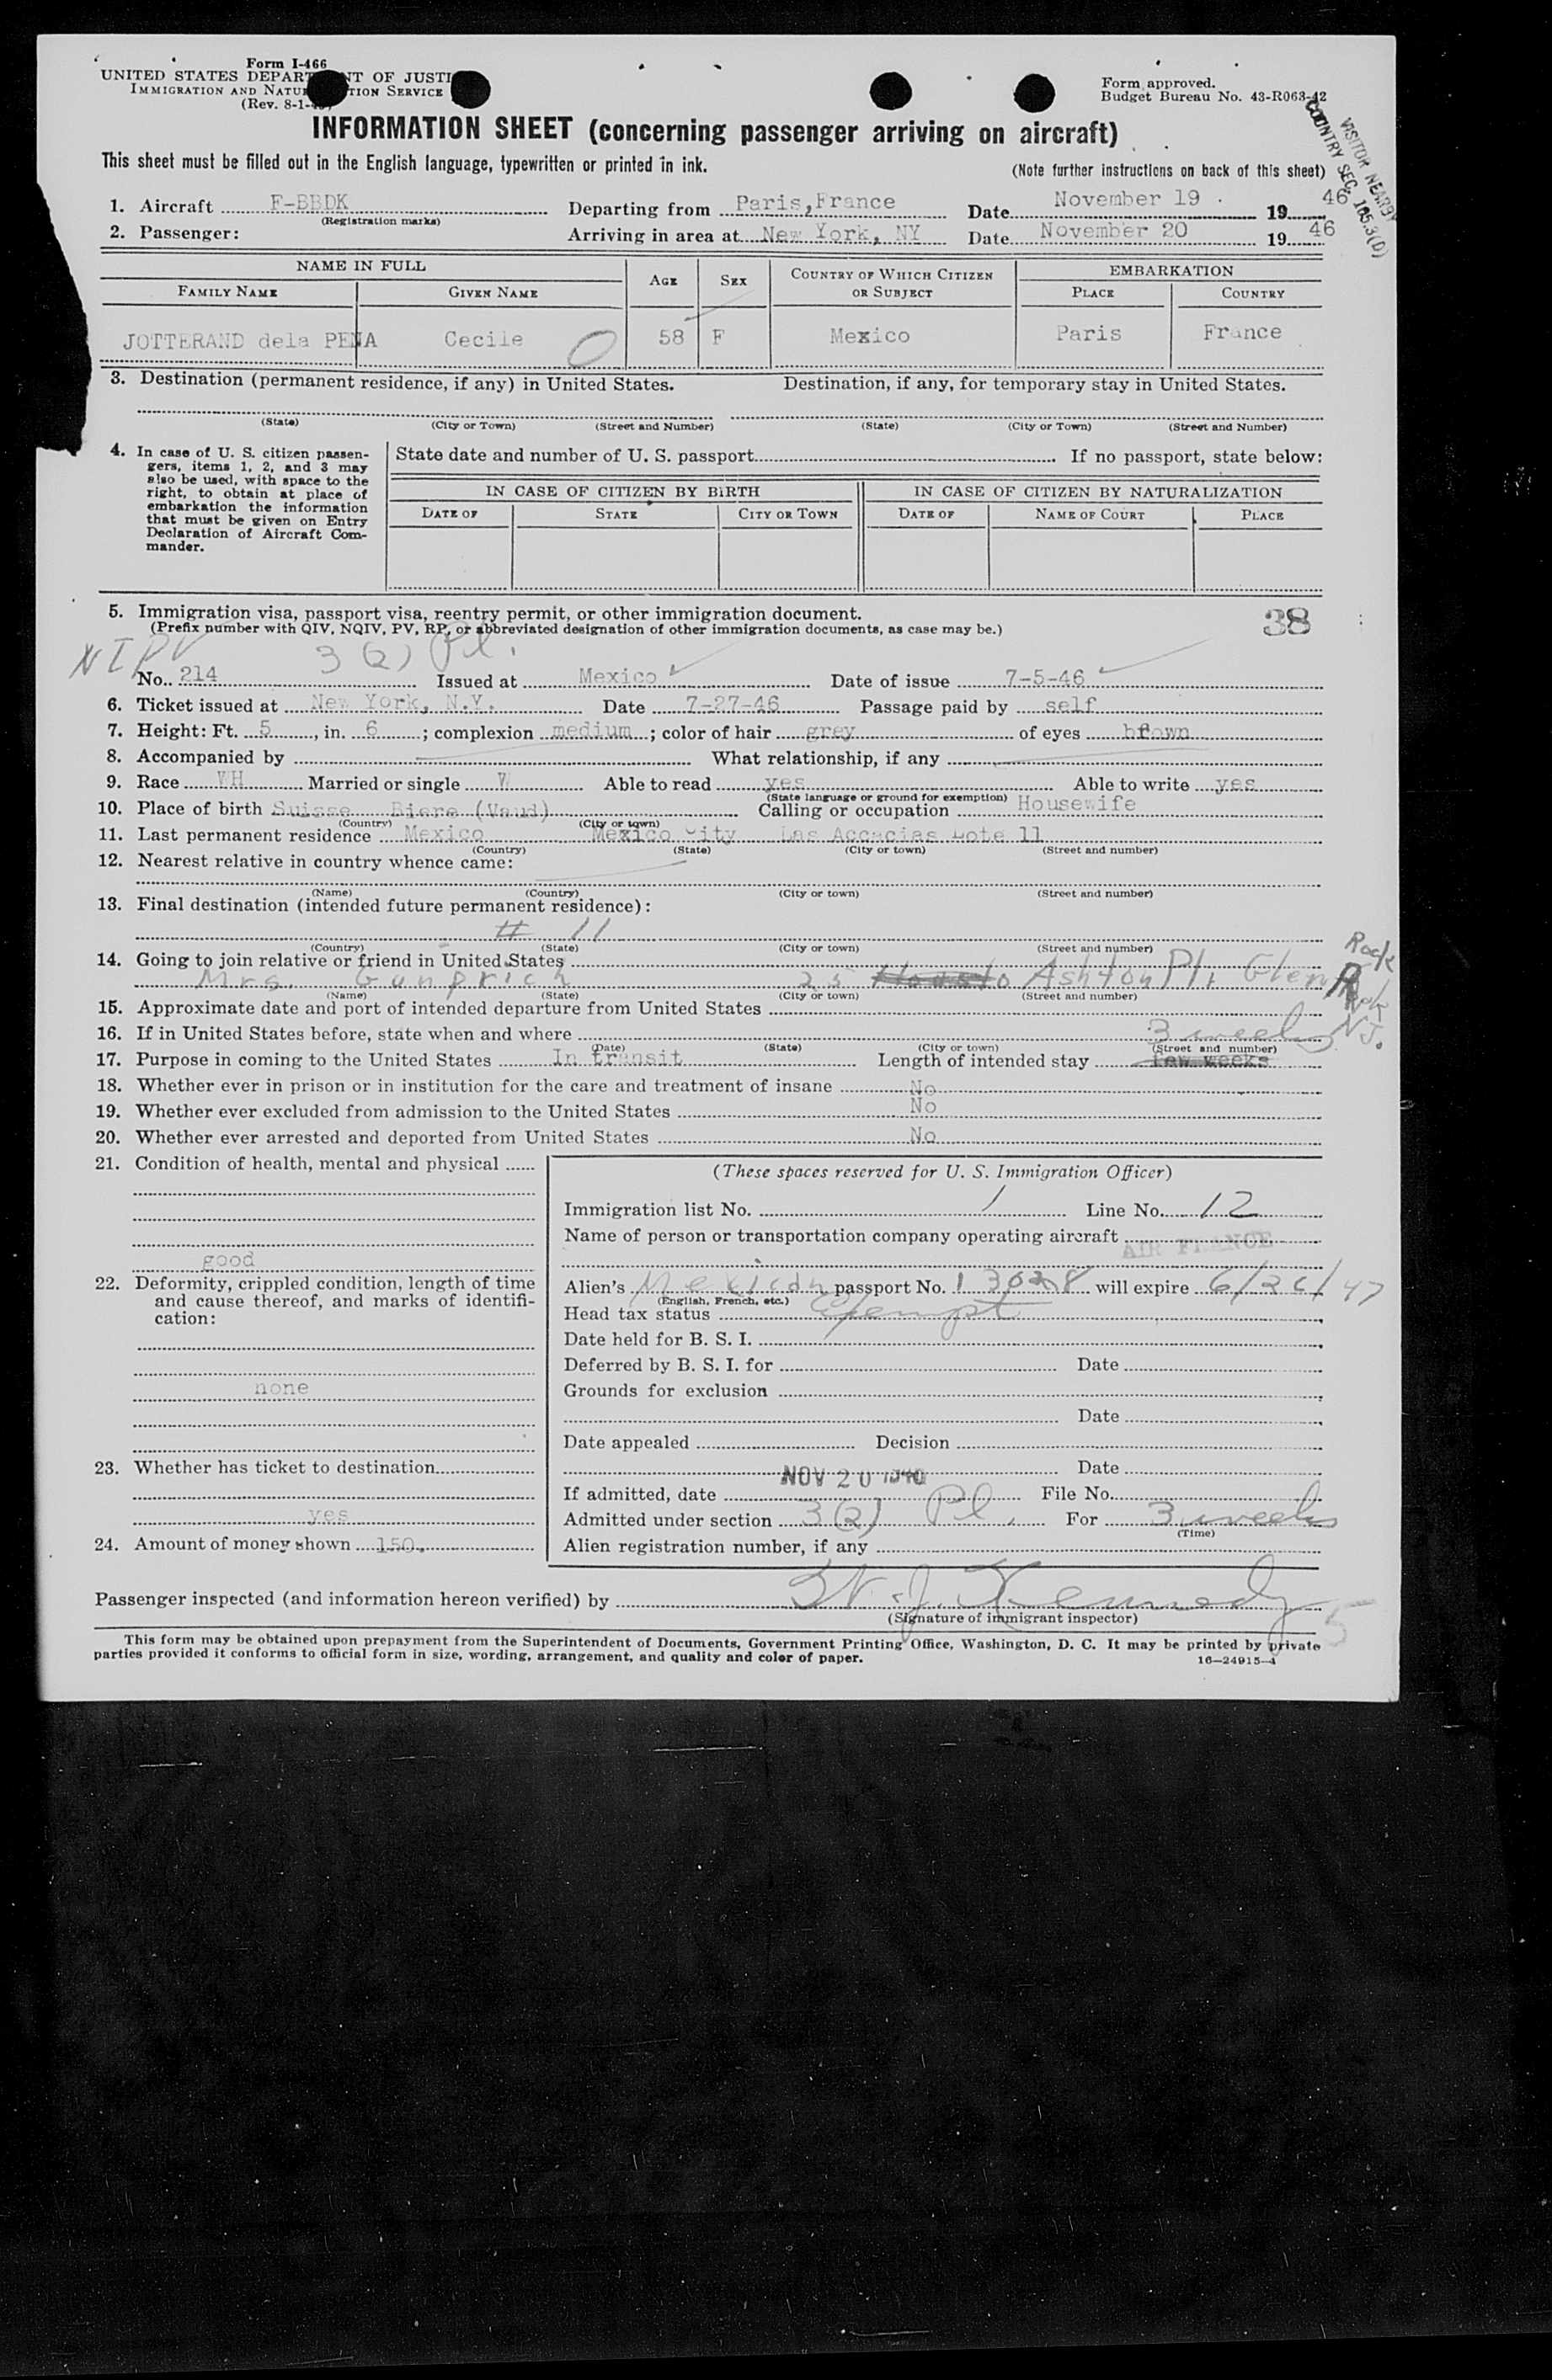 Form I-466
UNITED STATES DEPART NT OF JUSTI
IMMIGRATION AND NATU TION SERVICE
(Rev. 8-1-
Form approved.
Budget Bureau No. 43-R063-42
VISITOR NEARBY
COUNTRY SEC. 165.3(D)
INFORMATION SHEET (concerning passenger arriving on aircraft)
This sheet must be filled out in the English language, typewritten or printed in ink. (Note further instructions on back of this sheet)
1. Aircraft F-BBDK Departing from Paris,France Date November 19 1946
(Registration marks)
2. Passenger: Arriving in area at New York, NY Date November 20 1946
NAME IN FULL AGE SEX COUNTRY OF WHICH CITIZEN OR SUBJECT EMBARKATION
FAMILY NAME GIVEN NAME PLACE COUNTRY
JOTTERAND dela PENA Cecile 58 F Mexico Paris France
3. Destination (permanent residence, if any) in United States. Destination, if any, for temporary stay in United States.
(State) (City or Town) (Street and Number) (State) (City or Town) (Street and Number)
4. In case of U. S. citizen passen-
gers, items 1, 2, and 3 may
also be used, with space to the
right, to obtain at place of
embarkation the information
that must be given on Entry
Declaration of Aircraft Com-
mander.
State date and number of U. S. passport If no passport, state below:
IN CASE OF CITIZEN BY BIRTH IN CASE OF CITIZEN BY NATURALIZATION
DATE OF STATE CITY OR TOWN DATE OF NAME OF COURT PLACE
5. Immigration visa, passport visa, reentry permit, or other immigration document. 38
(Prefix number with QIV, NQIV, PV, RP, or abbreviated designation of other immigration documents, as case may be.)
NIPV 3(2) Pl.
No. 214 Issued at Mexico Date of issue 7-5-46
6. Ticket issued at New York, N.Y. Date 7-27-46 Passage paid by self
7. Height: Ft. 5, in. 6; complexion medium; color of hair grey of eyes brown
8. Accompanied by What relationship, if any
9. Race WH Married or single W Able to read yes Able to write yes
(State language or ground for exemption)
10. Place of birth Suisse Biere (Vaud) Calling or occupation Housewife
(Country) (City or town)
11. Last permanent residence Mexico Mexico City Las Accacias Lote 11
(Country) (State) (City or town) (Street and number)
12. Nearest relative in country whence came:
(Name) (Country) (City or town) (Street and number)
13. Final destination (intended future permanent residence):
# 11
(Country) (State) (City or town) (Street and number)
14. Going to join relative or friend in United States
Mrs. Gunprich 25 Ashton Pl. Glen Rock
Rock
N.J.
(Name) (State) (City or town) (Street and number)
15. Approximate date and port of intended departure from United States
16. If in United States before, state when and where 3 weeks
(Date) (State) (City or town) (Street and number)
17. Purpose in coming to the United States In transit Length of intended stay few weeks
18. Whether ever in prison or in institution for the care and treatment of insane No
19. Whether ever excluded from admission to the United States No
20. Whether ever arrested and deported from United States No
21. Condition of health, mental and physical
good
22. Deformity, crippled condition, length of time
and cause thereof, and marks of identifi-
cation:
none
23. Whether has ticket to destination
yes
24. Amount of money shown 150.
(These spaces reserved for U. S. Immigration Officer)
Immigration list No. 1 Line No. 12
Name of person or transportation company operating aircraft
AIR FRANCE
Alien's Mexican passport No. 13028 will expire 6/26/47
(English, French, etc.)
Head tax status Exempt
Date held for B. S. I.
Deferred by B. S. I. for Date
Grounds for exclusion
Date
Date appealed Decision
Date
If admitted, date NOV 20 1946 File No.
Admitted under section 3(2) Pl. For 3 weeks
(Time)
Alien registration number, if any
Passenger inspected (and information hereon verified) by W. J. Kennedy
(Signature of immigrant inspector)
5
This form may be obtained upon prepayment from the Superintendent of Documents, Government Printing Office, Washington, D. C. It may be printed by private
parties provided it conforms to official form in size, wording, arrangement, and quality and color of paper.
16—24915-4